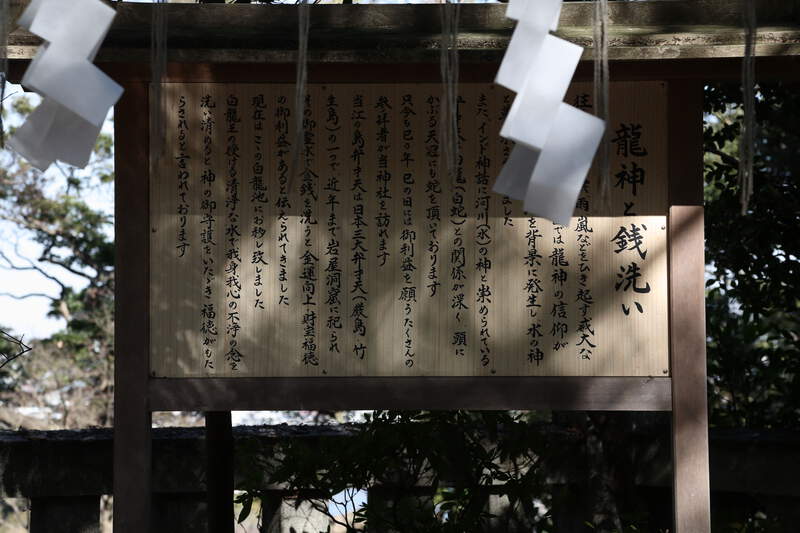 龍神と銭洗い
雨嵐などをひき起す或大な
では龍神の信仰が
を背景に発生し水の神
ました
またインド神話に河川(水)の神と崇められている
白龍(白蛇)との関係が深く 頭に
かぶる天冠にも蛇を頂いております
只今も巳の年 巳の日には御利益を願うたくさんの
参拝者が当神社を訪れます
当江の島弁才天は日本三大弁才天(厳島 竹
生島)の一つで 近年まで岩屋洞窟に祀られ
その御霊水で金銭を洗うと 金運向上 財宝福徳
の御利益があると伝えられてきました
現在はこの白龍池にお移し致しました
白龍王の授ける清浄な水で我身我心の不浄の念を
洗い清めると神の御守護をいただき 福徳がもた
らされると言われております